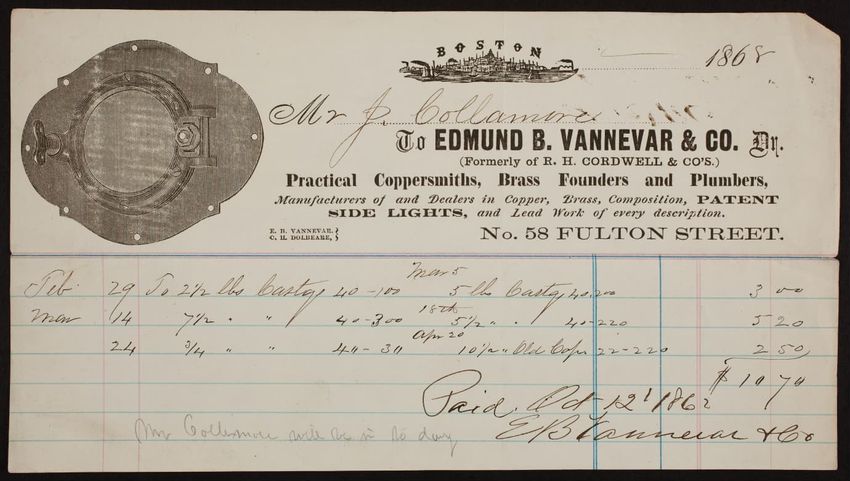 BOSTON
1868
Mr J. Collamore
To EDMUND B. VANNEVAR & CO. Dr.
(Formerly of R. H. CORDWELL & CO'S.)
Practical Coppersmiths, Brass Founders and Plumbers,
Manufacturers of and Dealers in Copper, Brass, Composition, PATENT
SIDE LIGHTS, and Lead Work of every description.
E. B. VANNEVAR.
C. H. DOLBEARE,
No. 58 FULTON STREET.
Mar 5
Feb 29 To 2 1/2 lbs Castgs 40-100 5 lb Castgs 40.200 3 00
18th
Mar 14 7 1/2 " " 40-300 5 1/2 " " 40-220 5 20
Apr 20
24 3/4 " " 40-30 10 1/2 " Old Copr 22-220 2 50
$10 70
Paid Oct 12 1868
E B Vannevar & Co
Mr Collamore will be in to day